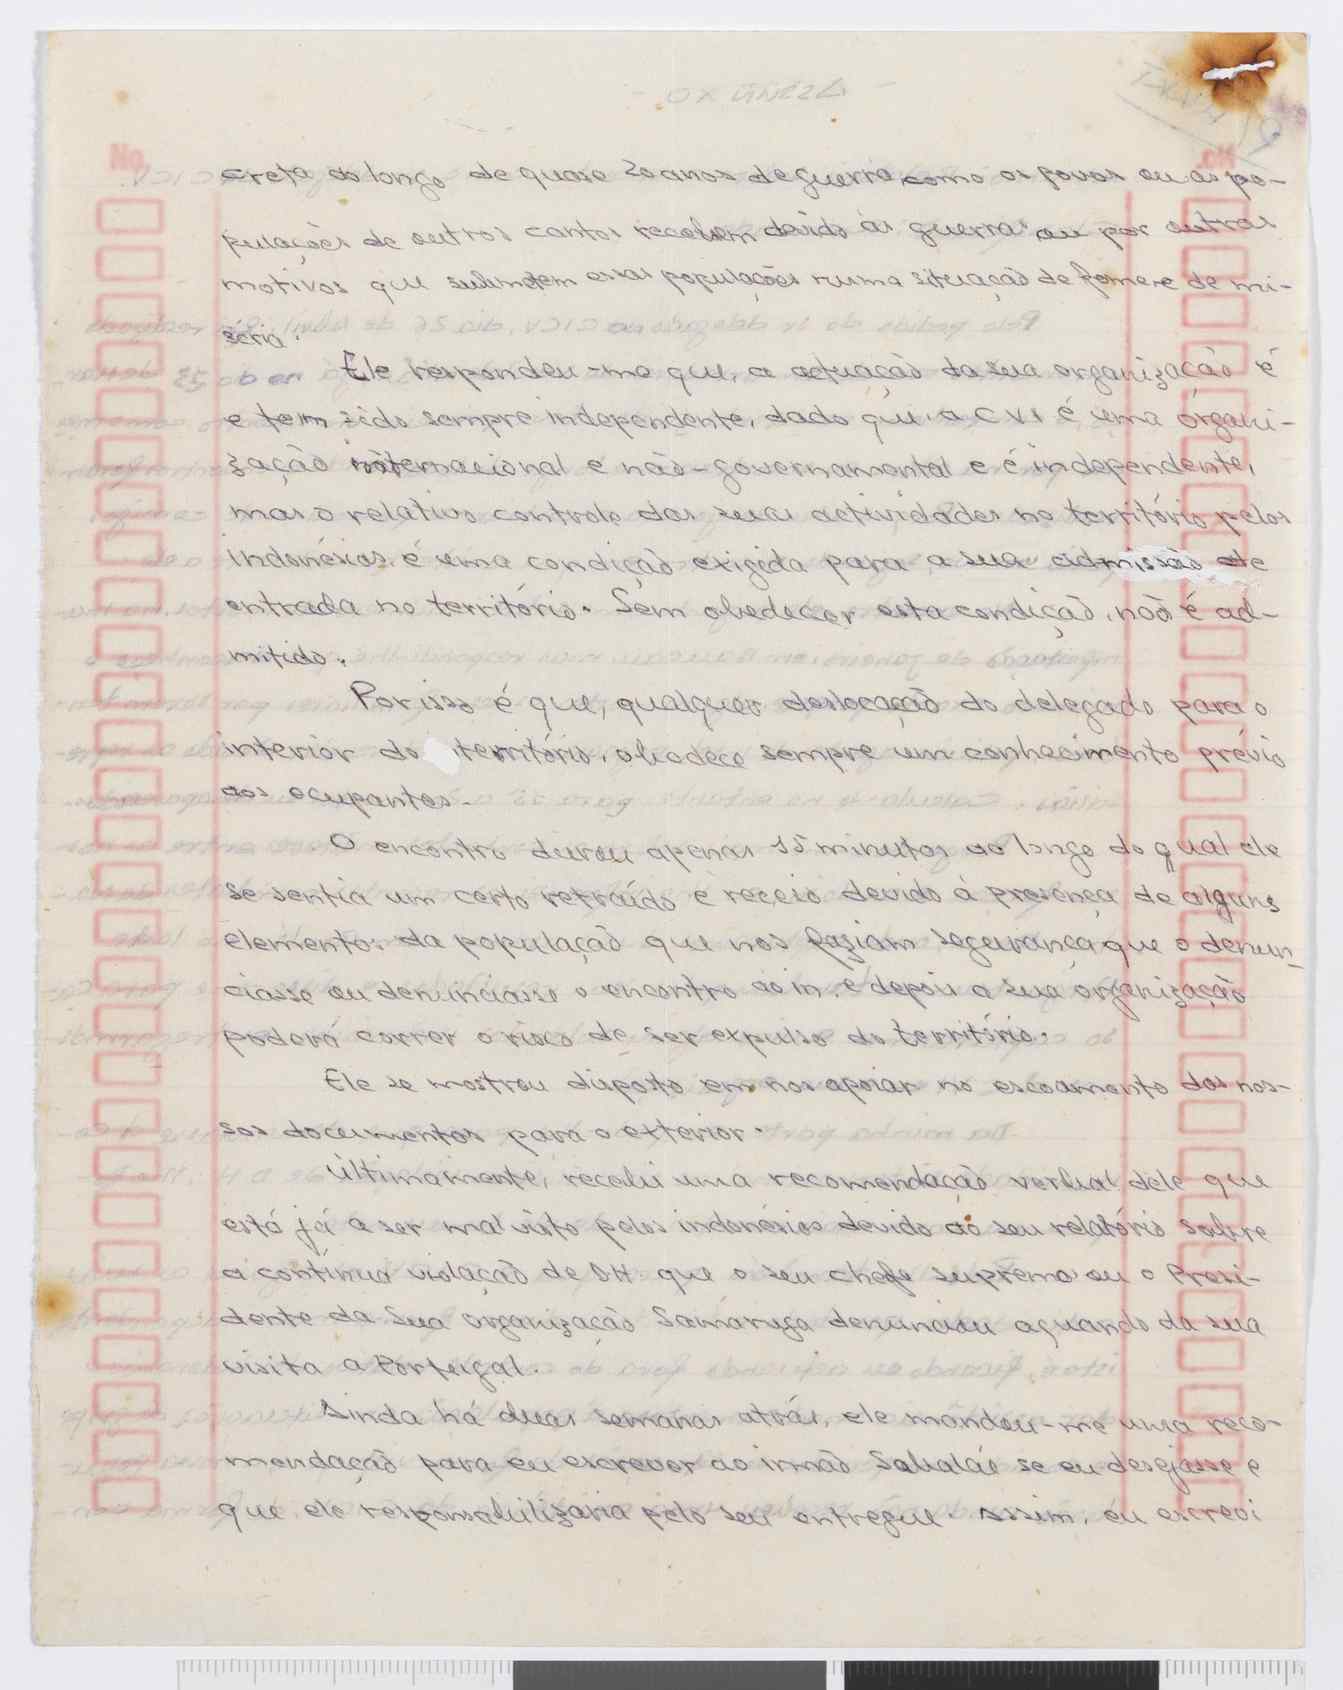 creta ao longo de quase 20 anos de guerra como os povos ou as po-
pulações de outros cantos recebem devido às guerras ou por outros
motivos que submetem essas populações numa situação de fome e de mi-
séria.
Ele respondeu-me que, a actuação da sua organização é
e tem sido sempre independente, dado que, a CVI é uma organi-
zação internacional e não-governamental e é independente,
mas o relativo controlo das suas actividades no território pelos
indonésios é uma condição exigida para a sua admissão de
entrada no território. Sem obedecer esta condição, não é ad-
mitido.
Por isso é que, qualquer deslocação do delegado para o
interior do território, obedece sempre um conhecimento prévio
aos ocupantes.
O encontro durou apenas 15 minutos ao longo do qual ele
se sentia um certo retraído e receio devido à presença de alguns
elementos da população que nos faziam segurança que o denun-
ciasse ou denunciasse o encontro ao in. e depois a sua organização
poderá correr o risco de ser expulso do território.
Ele se mostrou disposto em nos apoiar no escoamento dos nos-
sos documentos para o exterior.
Ultimamente, recebi uma recomendação verbal dele que
está já a ser mal visto pelos indonésios devido ao seu relatório sobre
a contínua violação de DH que o seu chefe supremo ou o Presi-
dente da sua organização Samaruga denunciou aquando da sua
visita a Portugal.
Ainda há duas semanas atrás, ele mandou-me uma reco-
mendação para eu escrever ao irmão Sabalae se eu desejasse e
que ele responsabilizaria pelo seu entregue. Assim, eu escrevi